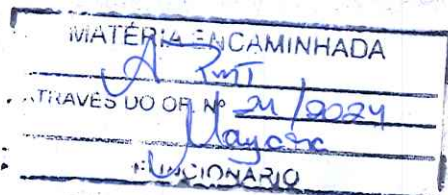 MATÉRIA ENCAMINHADA
A PMT
ATRAVÉS DO OF. Nº 21/2024
Mayara
FUNCIONÁRIO